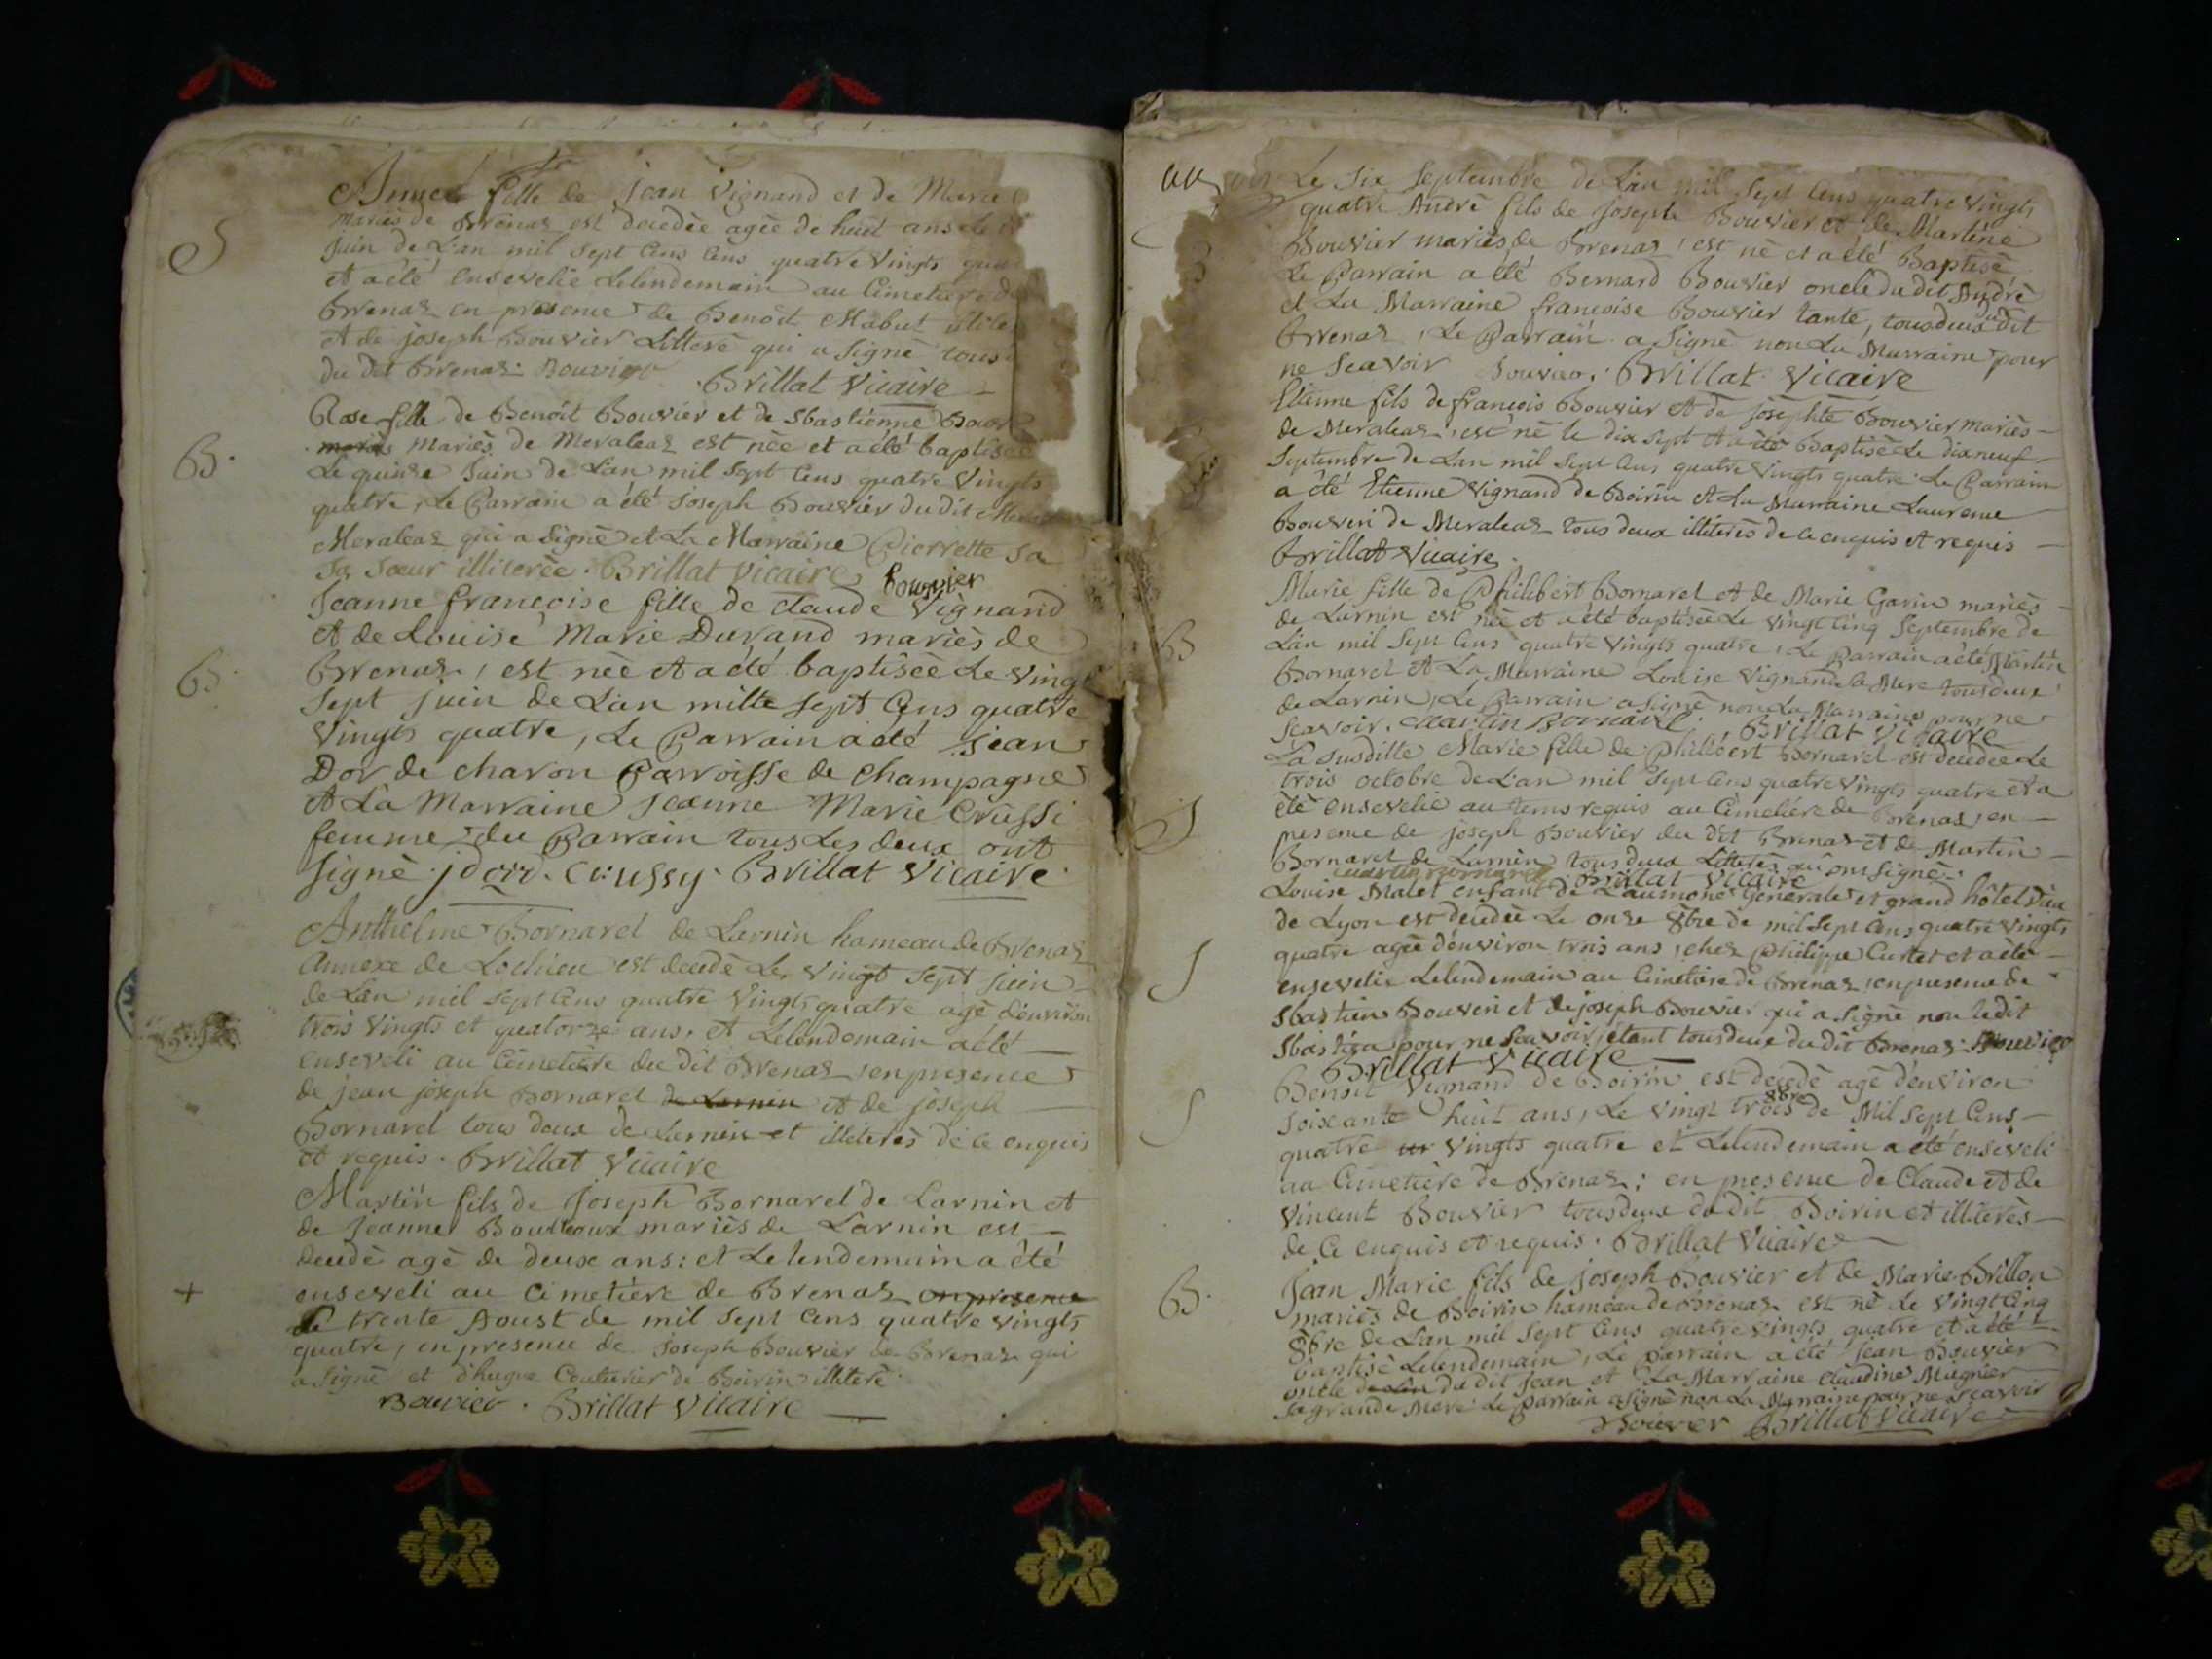 Anne fille de jean Vignand et de Marie
mariés de Brenaz est decedèe agèe de huit ans le
S
juin de L'an mil sept Cens Cens quatre Vingts
et a èté ensevelie Lelendemain au Cimetiere
Brenaz en presence de Benoit Mabut
et de joseph Bouvier Litterè qui a signè tous
du dit Brenaz. Bouvier Brillat Vicaire
Rose fille de Benoit Bouvier et de Sbastienne
B.
mariès Mariès de Meraleaz est nèe et a èté baptisèe
Le quinze Juin de L'an mil sept Cens quatre Vingts
quatre, Le Parrain a èté Joseph Bouvier du dit
Meraleaz qui a signè et La Marraine Pierrette sa
sa sœur illiterèe. Brillat Vicaire Bouvier
Jeanne françoise fille de claude Vignand
et de Louise Marie Durand mariès de
B.
Brenaz, est nèe et a èté baptisèe Le Vingt
sept juin de L'an mille sept Cens quatre
Vingts quatre, Le Parrain a èté jean
Dor de charon Parroisse de Champagne
et La Marraine jeanne Marie Crussi
femme du Parrain tous Les deux ont
signè. jdor. crussy. Brillat Vicaire
Anthelme Bornarel de Larnin hameau de Brenaz
Annexe de Lochieu est decedè Le Vingt sept juin
de L'an mil sept Cens quatre Vingts quatre agè d'environ
trois Vingts et quatorze ans. et Lelendemain a èté
enseveli au Cimetiere du dit Brenaz en presence
de jean joseph Bornarel de Larnin et de joseph
Bornarel tous deux de Larnin et illiterès de ce enquis
et requis. Brillat Vicaire
Martin fils de Joseph Bornarel de Larnin et
de Jeanne mariès de Larnin est
decedè agè de deux ans: et Lelendemain a èté
+
enseveli au Cimetière de Brenaz en presence
Le trente Aoust de mil sept Cens quatre vingts
quatre, en presence de Joseph Bouvier de Brenaz qui
a signè et d'hugue Couturier de Boirin illiterè.
Bouvier. Brillat Vicaire
Le six septembre de L'an mil sept Cens quatre Vingts
quatre Andrè fils de Joseph Bouvier et de Martine
Bouvier mariès de Brenaz, est nè et a èté Baptisè
Le Parrain a èté Bernard Bouvier oncle du dit Andrè
et La Marraine françoise Bouvier tante, tous deus du dit
Brenaz, Le Parrain a signè non La Marraine pour
ne sçavoir Bouvier. Brillat Vicaire
Etienne fils de françois Bouvier et de josephte Bouvier mariès
de Meraleaz, est nè le dix sept et a èté Baptisè Le dixneuf
septembre de L'an mil sept Cens quatre Vingts quatre. Le Parrain
a èté Etienne Vignand de Boirin et La Marraine Laurence
Bouveri de Meraleaz tous deux illiterès de ce enquis et requis
Brillat Vicaire.
Marie fille de Philibert Bornarel et de Marie Garin mariès
de Larnin est nèe et a èté baptisèe Le Vingt Cinq Septembre de
B
L'an mil sept Cens quatre vingts quatre, Le Parrain a èté Martin
Bornarel et La Marraine Louise Vignand sa Mere tous deux
de Larnin, Le Parrain a signè non La Marraine pour ne
sçavoir. Martin Bornarel. Brillat Vicaire
La susditte Marie fille de Philibert Bornarel est decedèe Le
trois octobre de L'an mil sept Cens quatre Vingts quatre et a
S
èté ensevelie au tems requis au Cimetière de Brenaz, en
presence de joseph Bouvier du dit Brenaz et de Martin
Bornarel de Larnin tous deux Litterès qui ont signè.
Martin Bornarel Brillat Vicaire
Louise Malet enfant de L'aumone Generale et grand hôtel Dieu
de Lyon est decedèe Le onze 8bre de mil sept Cens quatre Vingts
quatre agèe d'environ trois ans, chez Philippe Curtet et a èté
S
ensevelie Lelendemain au Cimetiere de Brenaz, en presence de
Sbastien Bouveri et de joseph Bouvier qui a signè non le dit
Sbastien pour ne sçavoir, étant tous deux du dit Brenaz. Bouvier
Brillat Vicaire
Benoit Vignand de Boirin est decedè agè d'environ
S
soixante huit ans, Le Vingt trois 8bre de Mil sept Cens
quatre Vingts quatre et Lelendemain a èté enseveli
au Cimetiere de Brenaz: en presence de Claude et de
Vincent Bouvier tous deux du dit Boirin et illiterès
de Ce enquis et requis. Brillat Vicaire
B.
Jean Marie fils de joseph Bouvier et de Marie Brillon
mariès de Boirin hameau de Brenaz est nè Le Vingt Cinq
8bre de L'an mil sept Cens quatre vingts quatre et a èté
baptisè Lelendemain, Le parrain a èté jean Bouvier
oncle du dit jean et La Marraine Claudine Mugnier
sa grande Mere Le parrain a signè non La Marraine pour ne sçavoir
Bouvier Brillat Vicaire